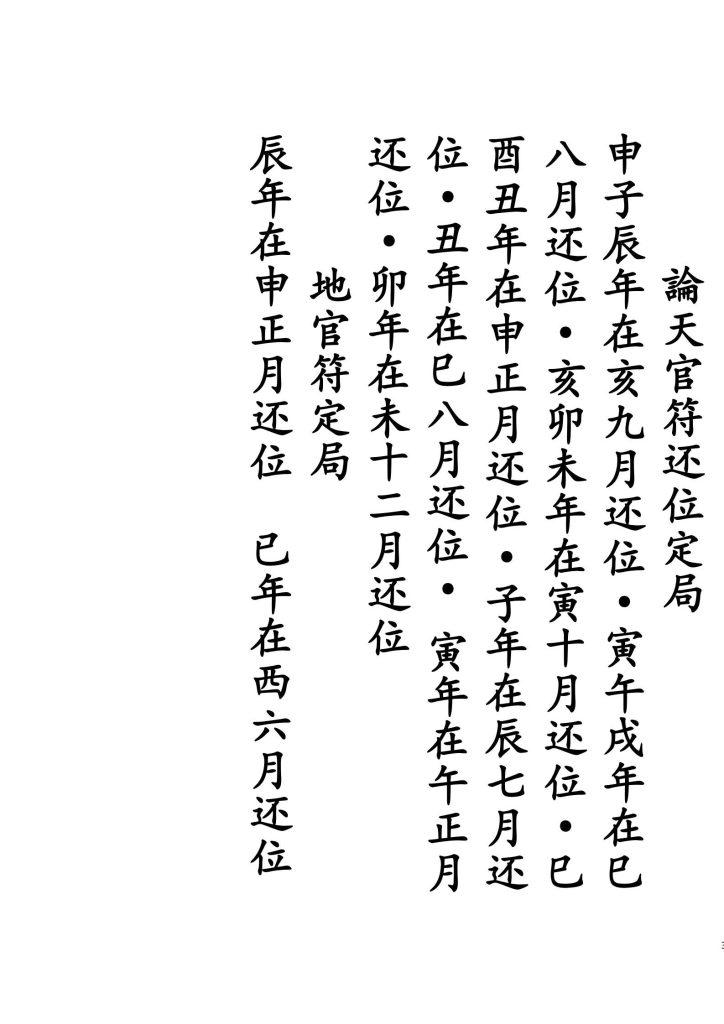 論天官符还位定局
申子辰年在亥九月还位·寅午戌年在巳
八月还位·亥卯未年在寅十月还位·巳
酉丑年在申正月还位·子年在辰七月还
位·丑年在巳八月还位· 寅年在午正月
还位·卯年在未十二月还位
地官符定局
辰年在申正月还位 巳年在酉六月还位